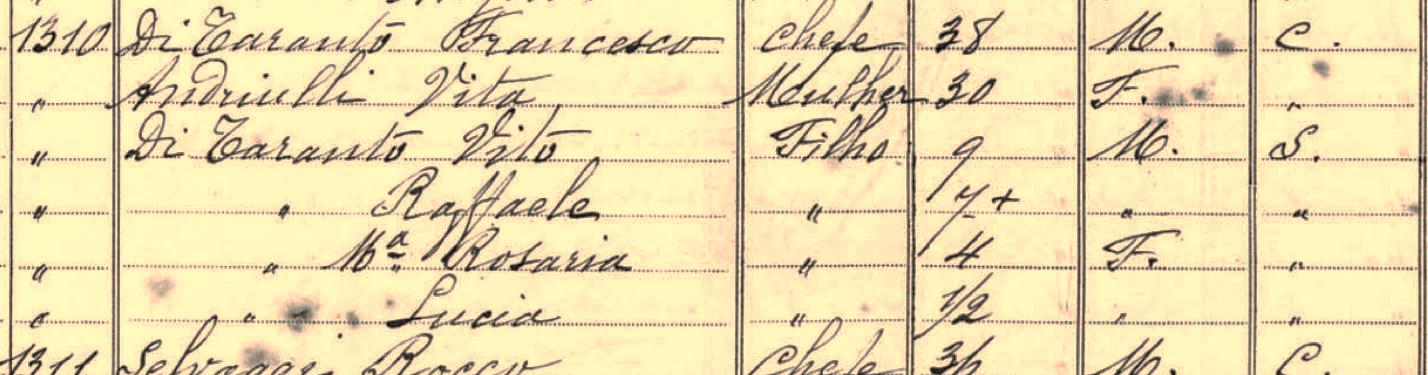 1310 Di Taranto Francesco chefe 38 M. C.
" Andriulli Vita Mulher 30 F. "
" Di Taranto Vito Filho 9 M. S.
" " Raffaele " 7+ " "
" " Mª Rosaria " 4 F. "
" " Lucia " 1/2 " "
1311 Selvaggi Rocco Chefe 36 M. C.